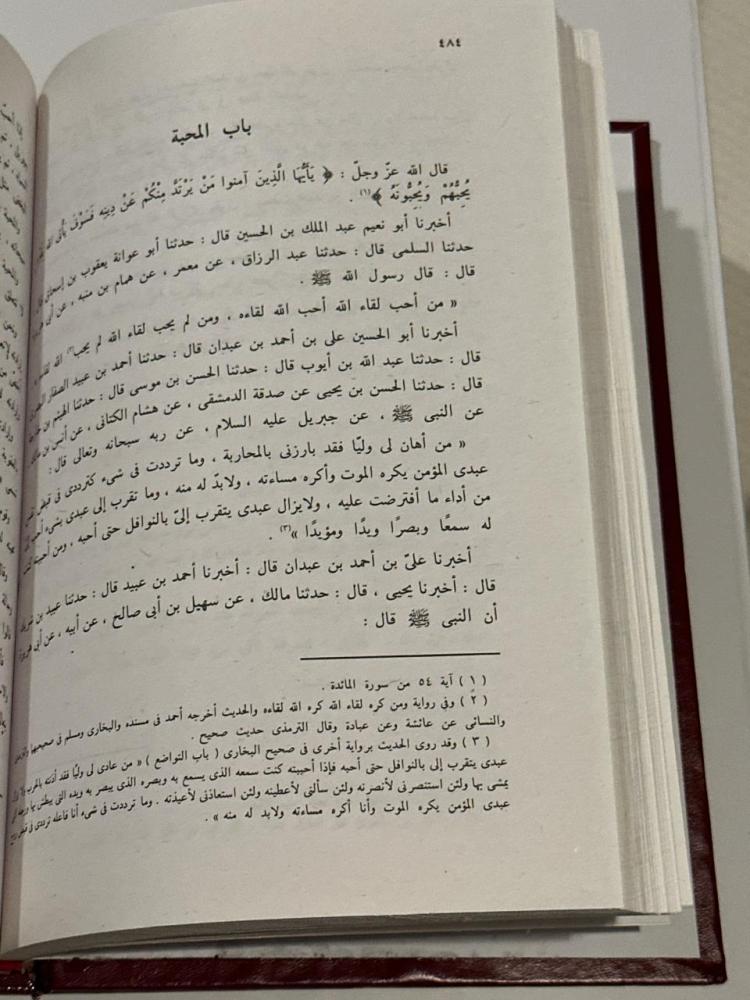 ٤٨٤
باب المحبة
قال الله عزّ وجلّ : ﴿ يَأَيُّهَا الَّذِينَ آمنوا مَنْ يَرْتَدَّ مِنْكُمْ عَنْ دِينِهِ فَسَوْفَ يأتى الله
يُحِبُّهُمْ وَيُحِبُّونَهُ ﴾(١) .
أخبرنا أبو نعيم عبد الملك بن الحسين قال : حدثنا أبو عوانة يعقوب بن إسحاق قال
حدثنا السلمى قال : حدثنا عبد الرزاق ، عن معمر ، عن همام بن منبه ، عن أبى
قال : قال رسول الله ﷺ .
« من أحب لقاء الله أحب الله لقاءه ، ومن لم يحب لقاء الله لم يحب(٢) الله
أخبرنا أبو الحسين على بن أحمد بن عبدان قال : حدثنا أحمد بن عبيد الصفار
قال : حدثنا عبد الله بن أيوب قال : حدثنا الحسن بن موسى قال : حدثنا الهيثم بن
قال : حدثنا الحسن بن يحيى عن صدقة الدمشقى ، عن هشام الكتانى ، عن أنس بن مالك
عن النبى ﷺ ، عن جبريل عليه السلام ، عن ربه سبحانه وتعالى قال :
« من أهان لى وليّا فقد بارزنى بالمحاربة ، وما ترددت فى شىء كترددى فى قبض
عبدى المؤمن يكره الموت وأكره مساءته ، ولابدّ له منه ، وما تقرب إلى عبدى بشىء
من أداء ما أفترضت عليه ، ولايزال عبدى يتقرب إلىّ بالنوافل حتى أحبه ، ومن أحببته
له سمعًا وبصرًا ويدًا ومؤيدًا »(٣) .
أخبرنا علىّ بن أحمد بن عبدان قال : أخبرنا أحمد بن عبيد قال : حدثنا عبيد بن
قال : أخبرنا يحيى ، قال : حدثنا مالك ، عن سهيل بن أبى صالح ، عن أبيه ، عن أبى هريرة
أن النبى ﷺ قال :
( ١ ) آية ٥٤ من سورة المائدة .
( ٢ ) وفى رواية ومن كره لقاء الله كره الله لقاءه والحديث أخرجه أحمد فى مسنده والبخارى ومسلم فى صحيحهما
والنسائى عن عائشة وعن عبادة وقال الترمذى حديث صحيح .
( ٣ ) وقد روى الحديث برواية أخرى فى صحيح البخارى ( باب التواضع ) « من عادى لى وليّا فقد آذنته بالحرب
عبدى يتقرب إلى بالنوافل حتى أحبه فإذا أحببته كنت سمعه الذى يسمع به وبصره الذى يبصر به ويده التى يبطش بها
يمشى بها ولئن استنصرنى لأنصرنه ولئن سألنى لأعطينه ولئن استعاذنى لأعيذنه . وما ترددت فى شىء أنا فاعله ترددى فى
عبدى المؤمن يكره الموت وأنا أكره مساءته ولابد له منه » .